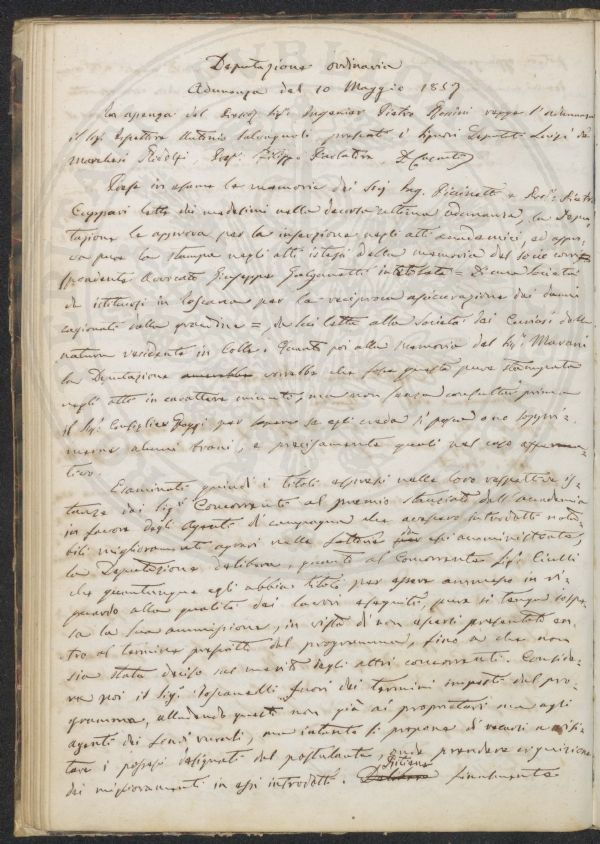 Deputazione ordinaria
Adunanza del 10 Maggio 1857
In assenza del Sig. Ingegner Pietro Rossini regge l'adunanza
il Sig. Ispettore Antonio Salvagnoli, presenti i Signori Deputati Luigi de
Marchesi Ridolfi, Filippo Parlatore,
Presa in esame la memoria dei Sig. Ing. e
Cuppari letta dai medesimi nella decorsa ultima adunanza, la Depu
tazione la approva per la inserzione negli atti accademici, ed appro
va pure la stampa negli atti istessi della memoria del socio corri
spondente Avvocato Giuseppe intitolata = D'una Società
da istituirsi in Toscana per la reciproca assicurazione dei danni
cagionati dalla grandine = da lui letta alla Società dei Curiosi della
natura residente in Colle. Quanto poi alla memoria del Sig.
la Deputazione vorrebbe che fosse questa pure stampata
negli atti in carattere minuto, ma non senza consultar prima
il Sig. Consigliere per sapere se egli creda si possa o no soppri-
merne alcuni brani, e precisamente quelli nel caso
tivo.
Esaminati quindi i titoli espressi nelle loro respettive is-
tanze dai Sigi. Concorrenti al premio stanziato dall'accademia
in favore degli Agenti di campagna che avessero introdotti nota-
bili miglioramenti agrarj nelle fattorie da essi amministrate,
la Deputazione delibera, quanto al Concorrente Sigi.
che quantunque egli abbia titolo per essere ammesso in ri-
guardo alla qualità dei lavori eseguiti, pure si tenga sospe-
sa la sua ammissione, in vista di non averli presentati en-
tro al termine prefisso del programma, fino a che non
sia stato deciso sul merito degli altri concorrenti. Conside-
ra poi il Sigi. Toscanelli fuori dei termini imposti dal pro-
gramma, alludendo questi non già ai proprietari ma agli
agenti dei fondi rurali, ma intanto si propone di recarsi a visi-
tare i possessi designati dal postulante, onde prendere cognizione
dei miglioramenti in essi introdotti. finalmente